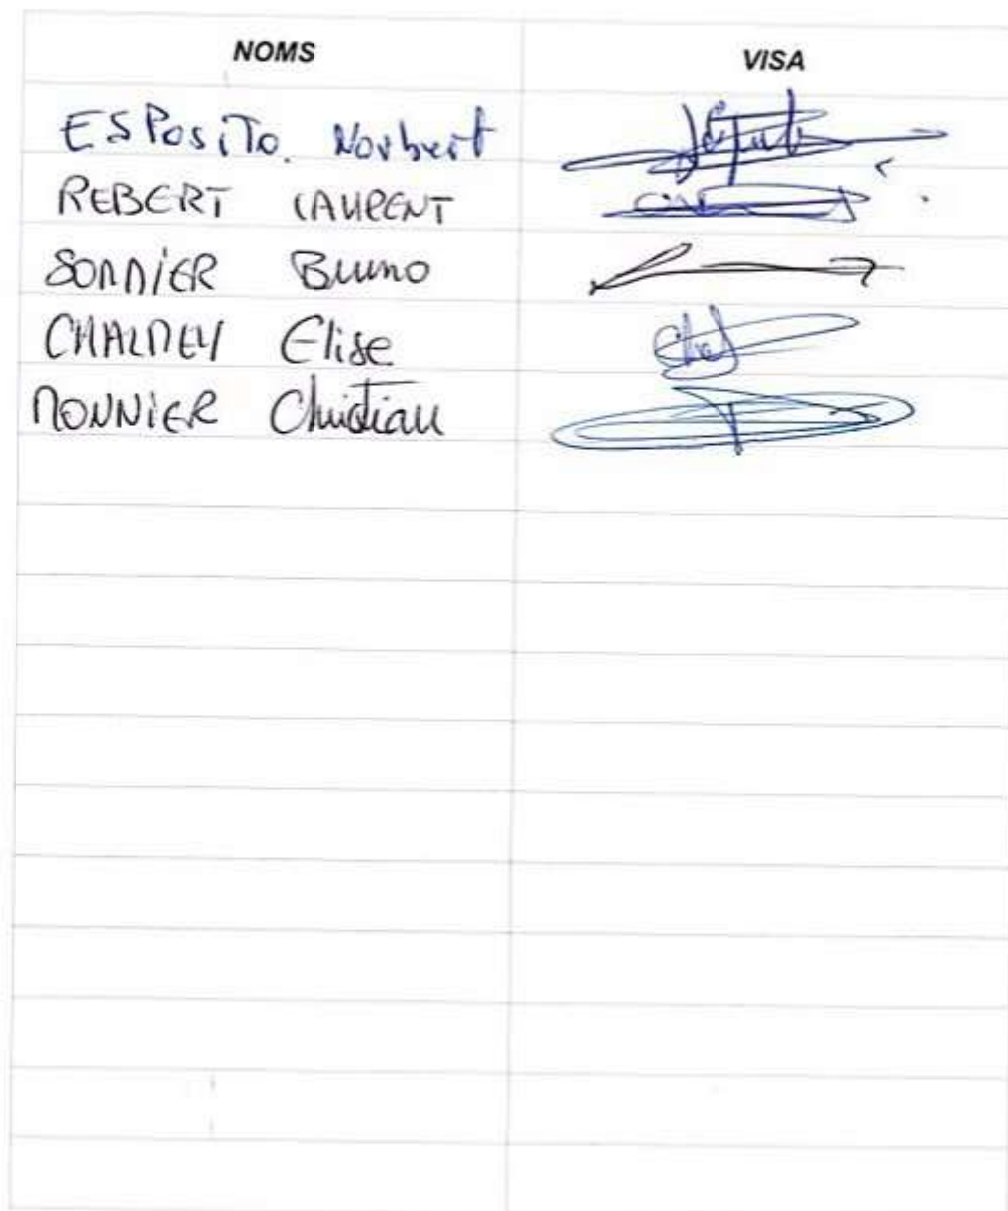 NOMS VISA
ESPOSITO. Norbert
REBERT LAURENT
SONNIER Bruno
Elise
MONNIER Christian